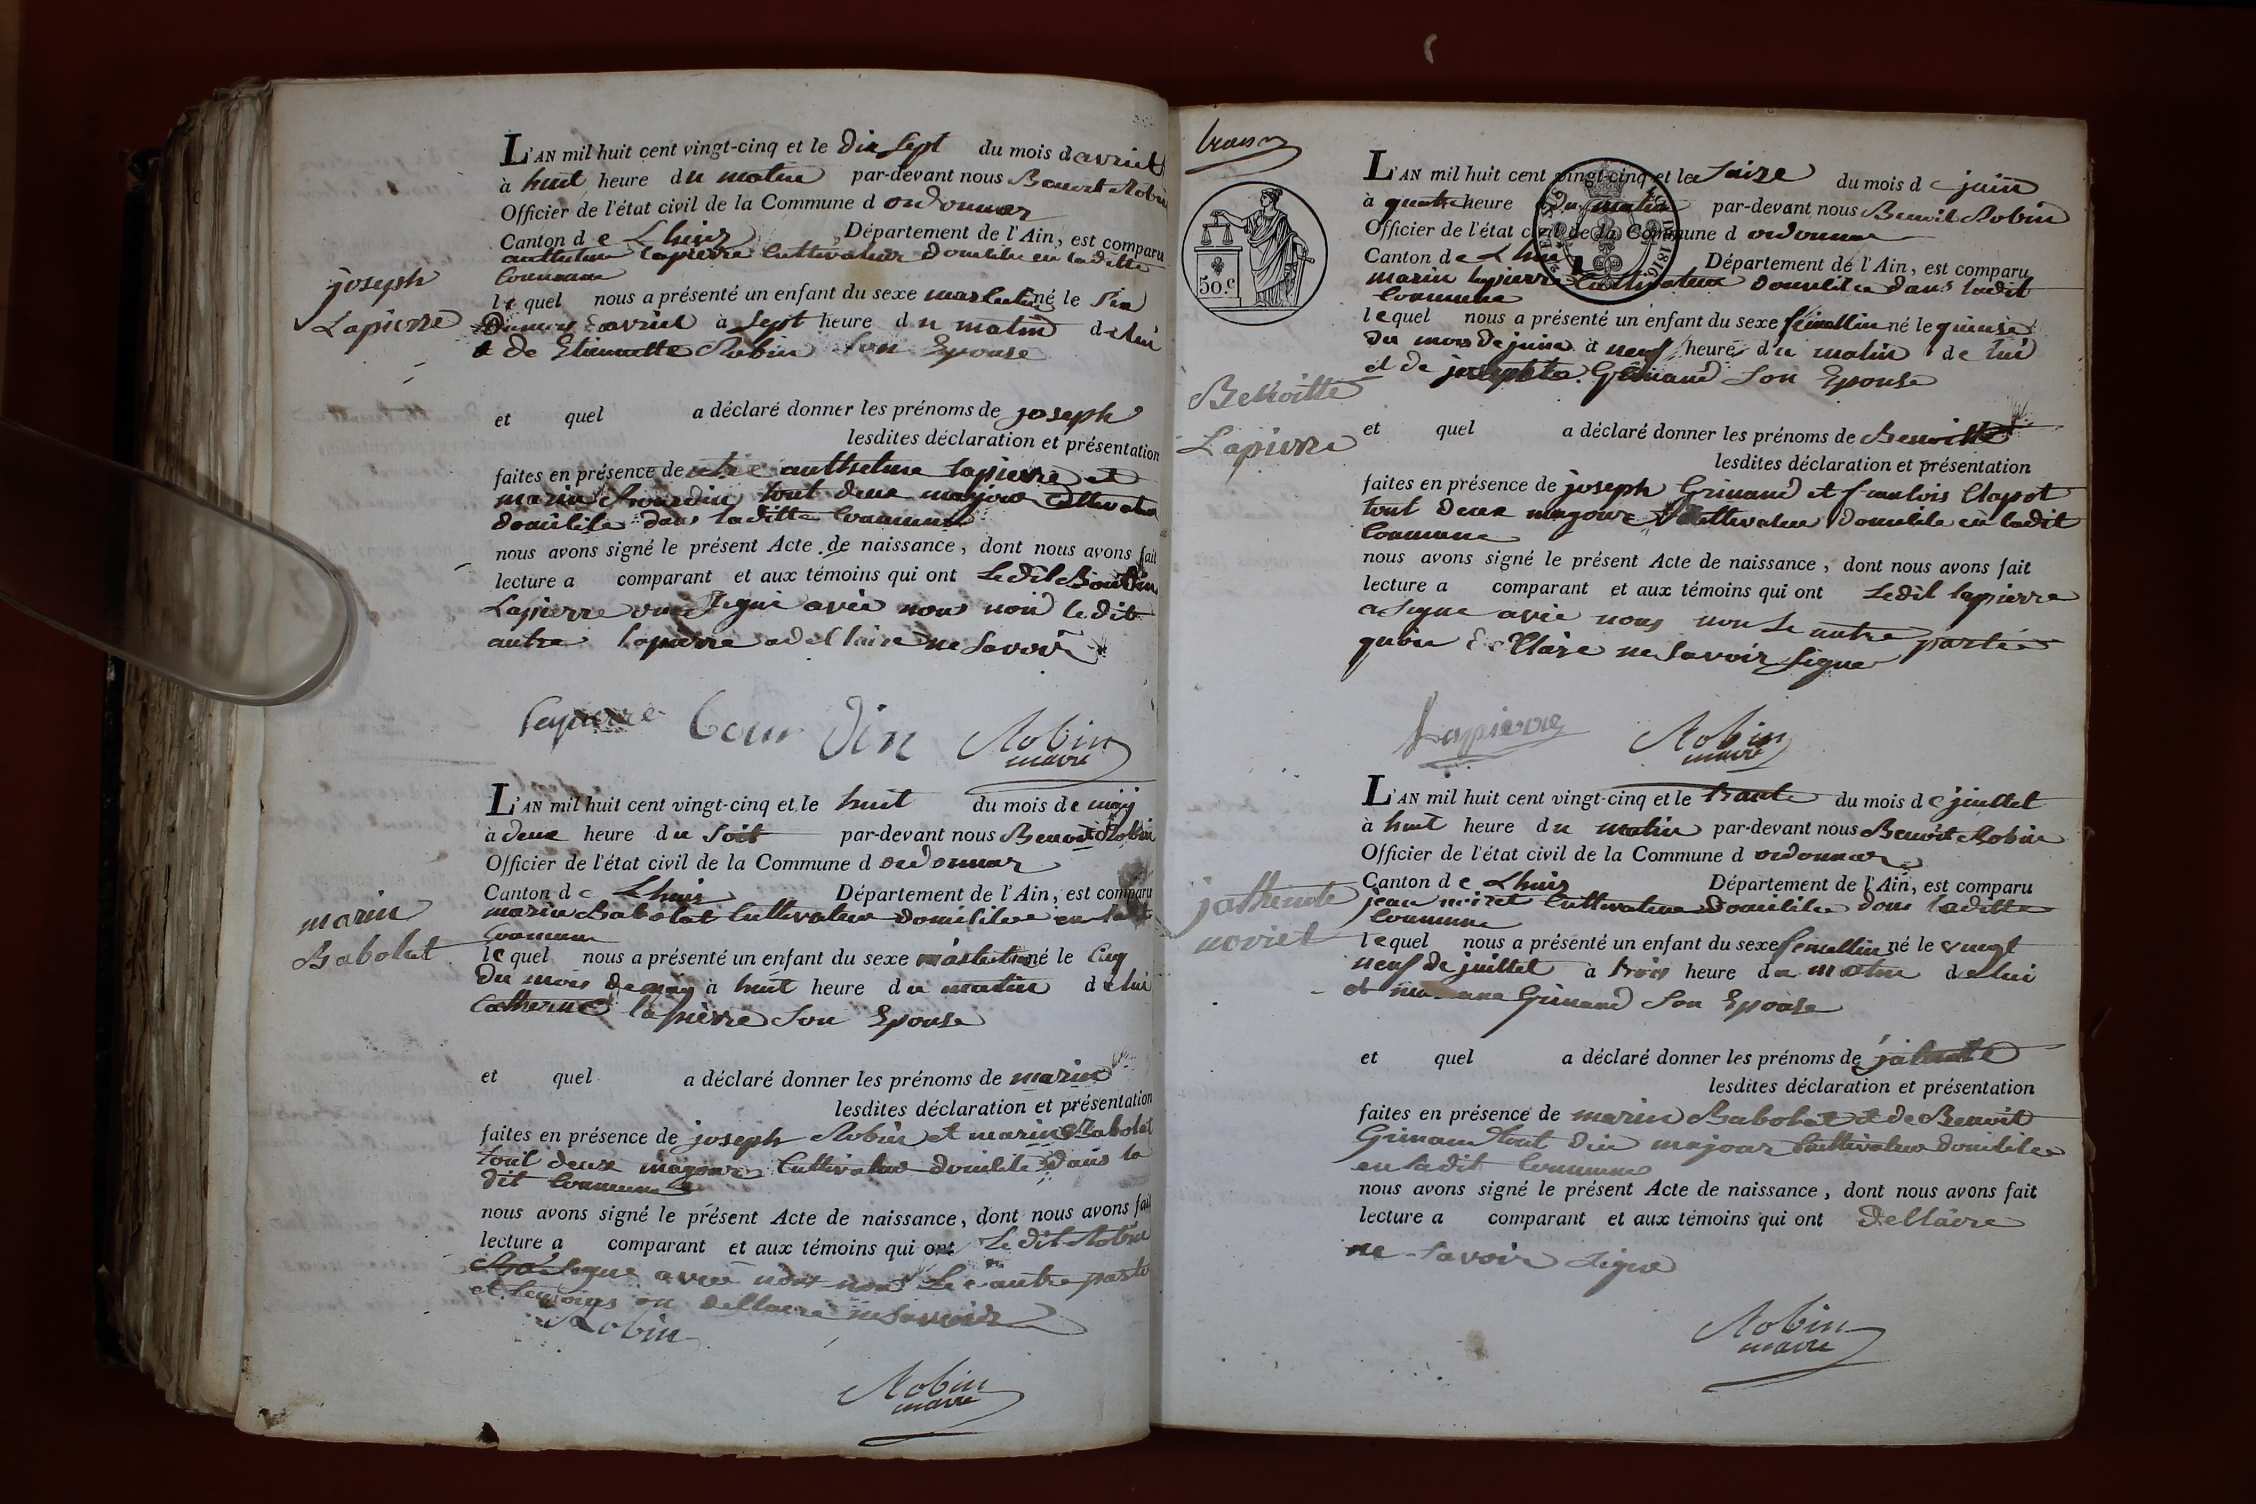 L'AN mil huit cent vingt-cinq et le dix sept du mois d avriel
à huit heure du matin par-devant nous Benoit Robin
Officier de l'état civil de la Commune d ordonnaz
Canton de Lhuis Département de l'Ain, est comparu
lapierre Cultivateur domilile en laditte
Commune
joseph
Lapierre
lequel nous a présenté un enfant du sexe masculin né le
avriel à sept heure du matin de lui
& de Etiennette Robin son Epouse
et quel a déclaré donner les prénoms de joseph
lesdites déclaration et présentation
faites en présence de anthelme lapierre et
marin tout deux majour Cultivateur
domilile dans laditte Commune
nous avons signé le présent Acte de naissance, dont nous avons fait
lecture a comparant et aux témoins qui ont Ledit
Lapierre signé avec nous non ledit
autre lapierre a declaire ne savoir
Lapierre Bour din Robin
maire
L'AN mil huit cent vingt-cinq et le huit du mois de may
à deux heure du soit par-devant nous Benoit Robin
Officier de l'état civil de la Commune d ordonnaz
Canton de Lhuis Département de l'Ain, est comparu
marin Babolat Cultivateur domilile en
Commune
marin
Babolat
lequel nous a présenté un enfant du sexe masculin né le Cinq
du mois de may à huit heure du matin de lui
Catherine lapierre son Epouse
et quel a déclaré donner les prénoms de marin
lesdites déclaration et présentation
faites en présence de joseph Robin et marin Babolat
tout deux majour Cultivateur domilile dans la
dit Commune
nous avons signé le présent Acte de naissance, dont nous avons fait
lecture a comparant et aux témoins qui ont Ledit Robin
signe avec nous non Le autre partie
et temoins on dellaire ne savoir
Robin
Robin
maire
50.c
L'AN mil huit cent vingt-cinq et le saize du mois de juin
à quatre heure du matin par-devant nous Benoit Robin
Officier de l'état civil de la Commune d ordonnaz
Canton de Lhuis Département de l'Ain, est comparu
marin lapierre Cultivateur domilile dans ladit
Commune
lequel nous a présenté un enfant du sexe femellin né le quinse
du mois de juin à neuf heure du matin de lui
et de josephte Grinand son Epouse
Benoitte
Lapierre
et quel a déclaré donner les prénoms de Benoitte
lesdites déclaration et présentation
faites en présence de joseph Grinand et franlois Clapot
tout deux majour Cultivateur domilile en ladit
Commune
nous avons signé le présent Acte de naissance, dont nous avons fait
lecture a comparant et aux témoins qui ont Ledit lapierre
a signe avec nous non Le autre partie
quon declaire ne savoir signe
Lapierre Robin
maire
L'AN mil huit cent vingt-cinq et le trante du mois de juillet
à huit heure du matin par-devant nous Benoit Robin
Officier de l'état civil de la Commune d ordonnaz
Canton de Lhuis Département de l'Ain, est comparu
jean Cultivateur domilile dans laditte
Commune
lequel nous a présenté un enfant du sexe femellin né le vingt
neuf de juillet à trois heure du matin de lui
et Grinand son Epouse
et quel a déclaré donner les prénoms de
lesdites déclaration et présentation
faites en présence de marin Babolat et de Benoit
Grinand tout deu majour Cultivateur domilile
en ladit Commune
nous avons signé le présent Acte de naissance, dont nous avons fait
lecture a comparant et aux témoins qui ont dellaire
ne savoir signe
Robin
maire